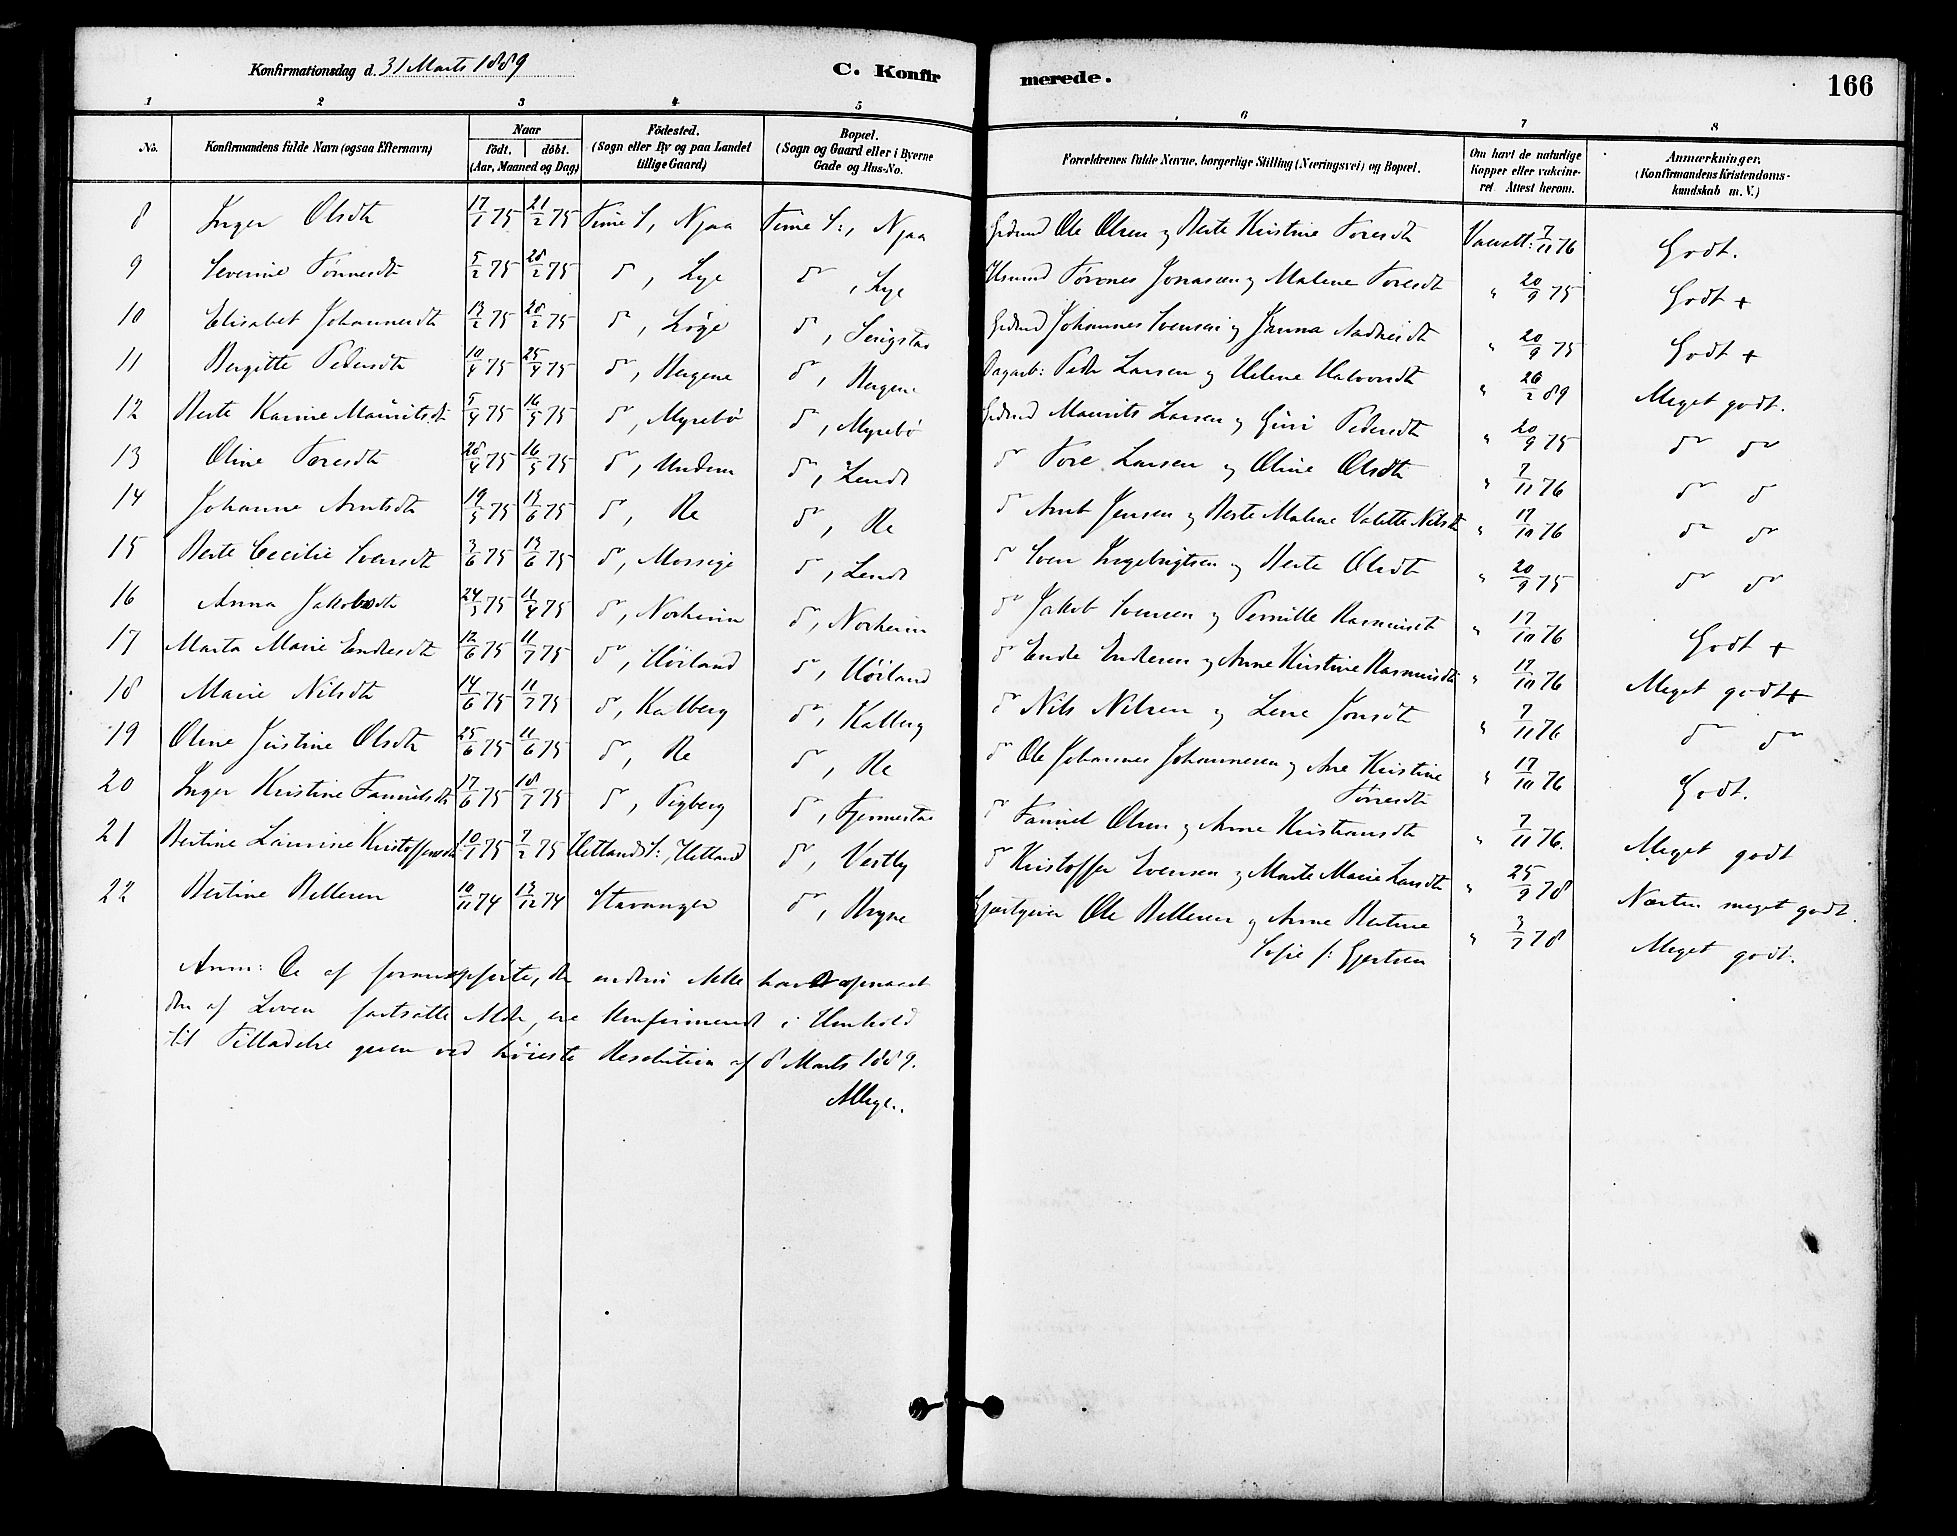 Konfirmationsdag d. 31 Marts 1889 C. Konfirmerede. 166
1 2 3 4 5 6 7 8
No. Konfirmandens fulde Navn (ogsaa Efternavn) Naar födt. döbt. (Aar, Maaned og Dag) Födested. (Sogn eller By og paa Landet tillige Gaard) Bopæl. (Sogn og Gaard eller i Byerne Gade og Hus-No. Forældrenes fulde Navne, borgerlige Stilling (Næringsvei) og Bopæl. Om havt de naturlige Kopper eller vakcineret. Attest herom. Anmærkninger. (Konfirmandens Kristendomskundskab m. V.)
8 Inger Olsdt 17/1 75 21/2 75 Time S, Njaa Time S:, Njaa Grdmd Ole Olsen og Berte Kristine Toresdt 7/11 76 Godt.
9 Severine Tönnesdt 5/2 75 28/2 75 do, Lye do, Lye Husmd Jonasen og Malene Toresdt " 20/9 75 Godt +
10 Elisabet Johannesdt 13/2 75 28/2 75 do, do, Grdmd Johannes Svensen og " 20/9 75 Godt +
11 Bergitte Pedersdt 10/4 75 25/4 75 do, Haugene do, Haugene Dagarb: Peder Larsen og Helene Halvorsdt " 26/2 89 Meget godt.
12 Berte Karine Mauritsdt 5/4 75 16/5 75 do, Myrebö do, Myrebö Grdmd Maurits Larsen og Guri Pedersdt " 20/9 75 do do
13 Oline Toresdt 28/4 75 16/5 75 do, Undem do, Lende do Tore Larsen og Oline Olsdt " 7/11 76 do do
14 Johanne Arntsdt 19/5 75 13/6 75 do, Re do, Re do Arnt Jensen og Berte Malene Valette Nilsdt " 17/10 76 do do
15 Berte Cecilie Svensdt 3/6 75 13/6 75 do, Mossige do, Lende do Sven Ingebrigtsen og Berte Olsdt " 20/9 75 do do
16 Anna Jakobsdt 24/5 75 11/4 75 do, Norheim do, Norheim do Jakob Svensen og Pernille Rasmusdt " 17/10 76 Godt +
17 Marta Marie Endresdt 12/6 75 11/7 75 do, Höiland do, Höiland do Endre Endresen og Anne Kirstine Rasmusdt " 17/10 76 Meget godt +
18 Marie Nilsdt 14/6 75 11/7 75 do, Kalberg do, Kalberg do Nils Nilsen og Lene Jonsdt " 7/11 76 do do
19 Oline Justine Olsdt 25/6 75 11/6 75 do, Re do, Re do Ole Johannes Johannesen og Ane Kristine Tönnesdt " 17/10 76 Godt.
20 Inger Kristine 17/6 75 18/7 75 do, Tegberg do, Fjermestad do Olsen og Anne Kristiansdt " 7/11 76. Meget godt
21 Bertine Laurine Kristoffersdt 10/1 75 7/2 75 Hetlands S:, Hetland do, Vestly do Kristoffer Evensen og Marte Marie Larsdt " 25/9 78 Næsten meget godt.
22 Bertine Bellesen 10/11 74 13/12 74 Stavanger do, Bryne Gjæstgiver Ole Bellesen og Anne Bertine Sofie f: Gjertsen " 3/7 78 Meget godt.
Anm: De af foranopförte, der endnu ikke havde opnaaet
den af Loven fastsatte Alder, ere konfirmeret i Henhold
til Tilladelse given ved höieste Resolution af 8 Marts 1889.